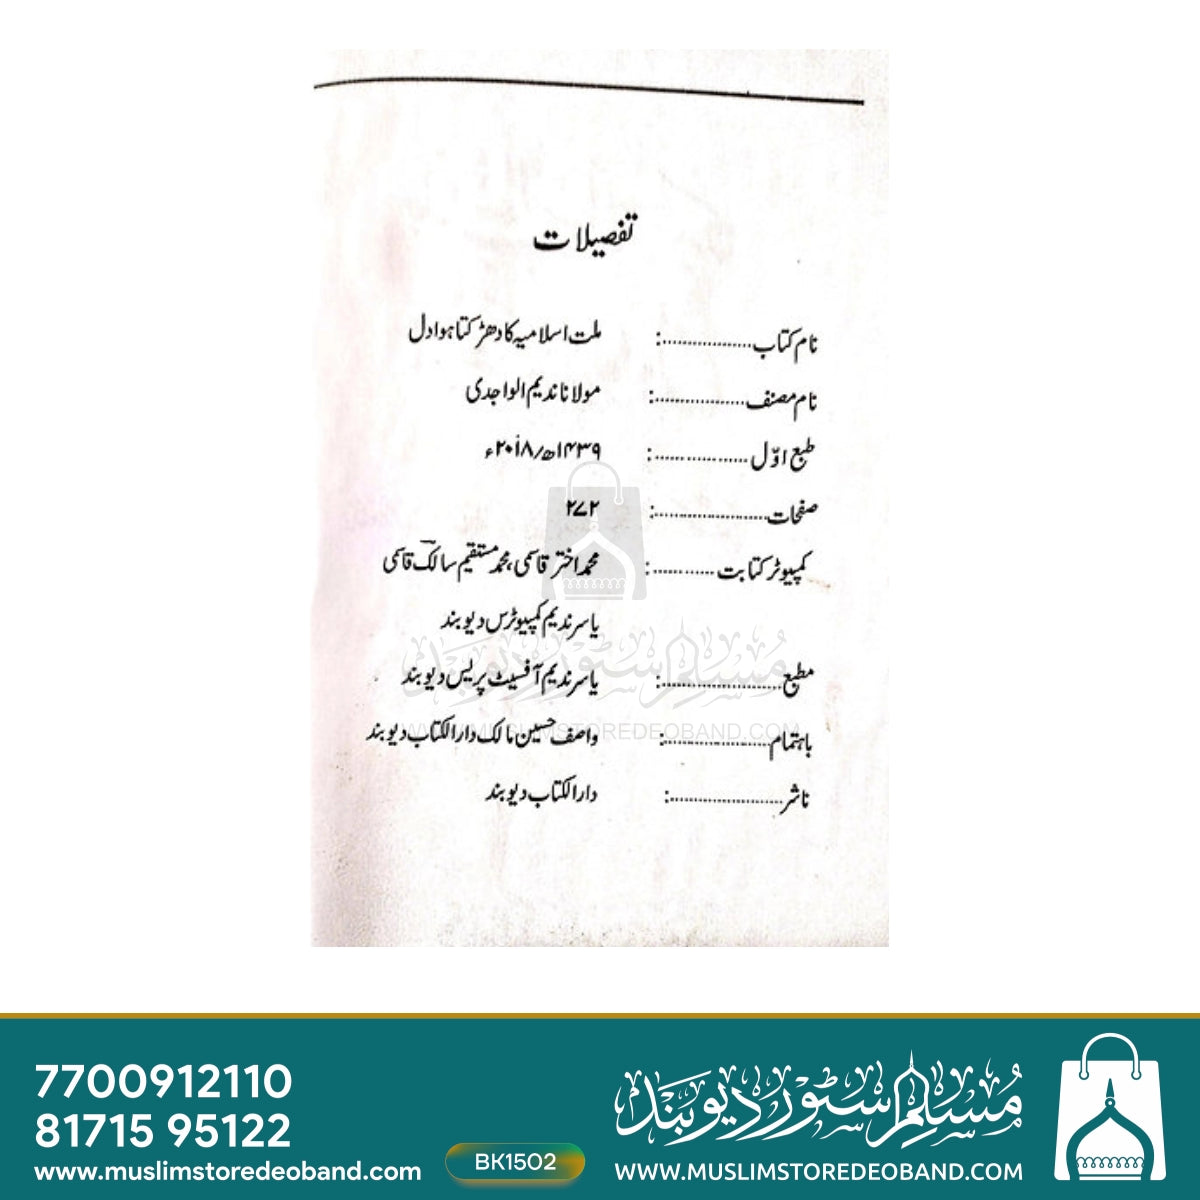 تفصیلات
نام کتاب..................: ملت اسلامیہ کا دھڑکتا ہوا دل
نام مصنف..................: مولانا ندیم الواجدی
طبع اوّل..................: ۱۴۳۹ھ/۲۰۱۸ء
صفحات......................: ۲۷۲
کمپیوٹر کتابت............: محمد اختر قاسمی، محمد مستقیم سالکؔ قاسمی
یاسر ندیم کمپیوٹرس دیوبند
مطبع........................: یاسر ندیم آفسیٹ پریس دیوبند
باہتمام.....................: واصف حسین مالک دارالکتاب دیوبند
ناشر.......................: دارالکتاب دیوبند
مسلم سٹور دیوبند
WWW.MUSLIMSTOREDEOBAND.COM
7700912110
81715 95122
www.muslimstoredeoband.com
BK1502
مسلم سٹور دیوبند
WWW.MUSLIMSTOREDEOBAND.COM